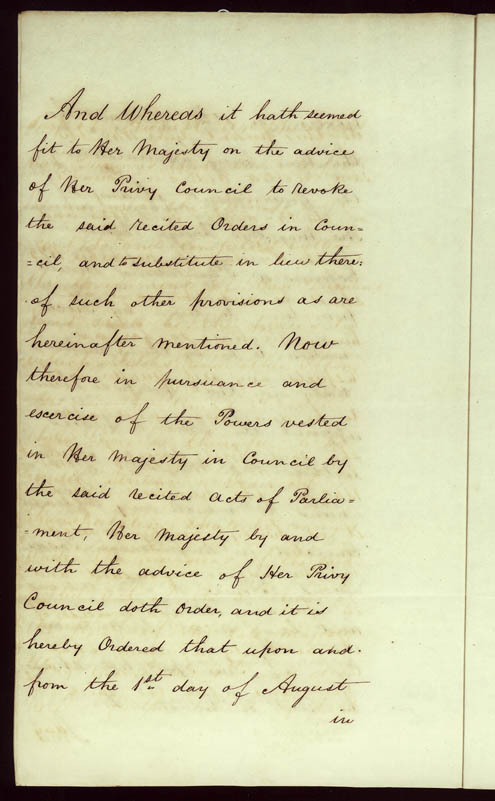 And Whereas it hath seemed
fit to Her Majesty on the advice
of Her Privy Council to revoke
the said recited Orders in Coun=
=cil, and to substitute in lieu there=
of such other provisions as are
hereinafter mentioned. Now
therefore in pursuance and
escercise of the Powers vested
in Her Majesty in Council by
the said recited acts of Parlia=
=ment, Her Majesty by and
with the advice of Her Privy
Council doth order, and it is
hereby Ordered that upon and
from the 1st day of August
in